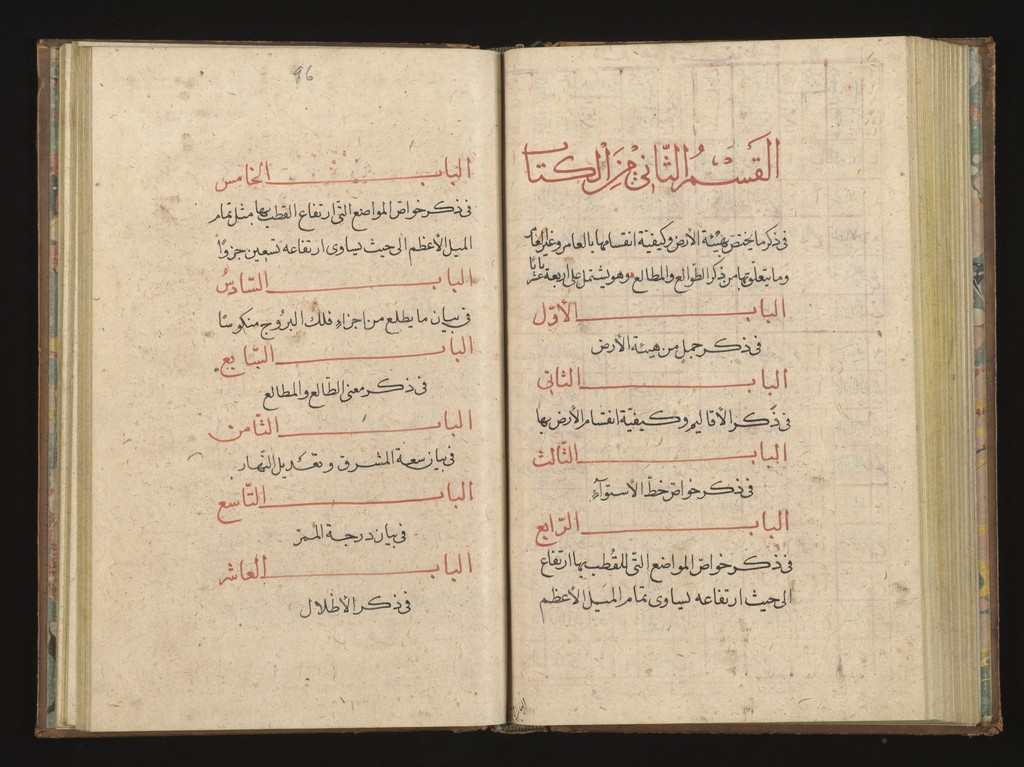 القسم الثاني من الكتاب
في ذكر ما يختص بهيئة الأرض وكيفية انقسامها بالعامر وغير العامر
وما يتعلق بها من ذكر الطوالع والمطالع وهو يشتمل على اربعة عشر بابًا
الباب الأوّل
في ذكر جمل من هيئة الأرض
الباب الثاني
في ذكر الأقاليم وكيفية انقسام الأرض بها
الباب الثّالث
في ذكر خواصّ خطّ الاستوآءِ
الباب الرّابع
في ذكر خواصّ المواضع التى للقُطب بها ارتفاع
الى حيث ارتفاعه يساوى تمام الميل الأعظم
96
الباب الخامس
في ذكر خواصّ المواضع التى ارتفاع القطب بها مثل تمام
الميل الأعظم الى حيث يساوى ارتفاعه تسعين جزوًا
الباب السّادسُ
في بيان ما يطلع من اجزاءِ فلك البروج منكوسًا
الباب السّابع
في ذكر معنى الطّالع والمطالع
الباب الثّامن
في بيان سعة المشرق وتعديل النّهار
الباب التّاسع
في بيان درجة الممرّ
الباب العاشر
في ذكر الأظلال